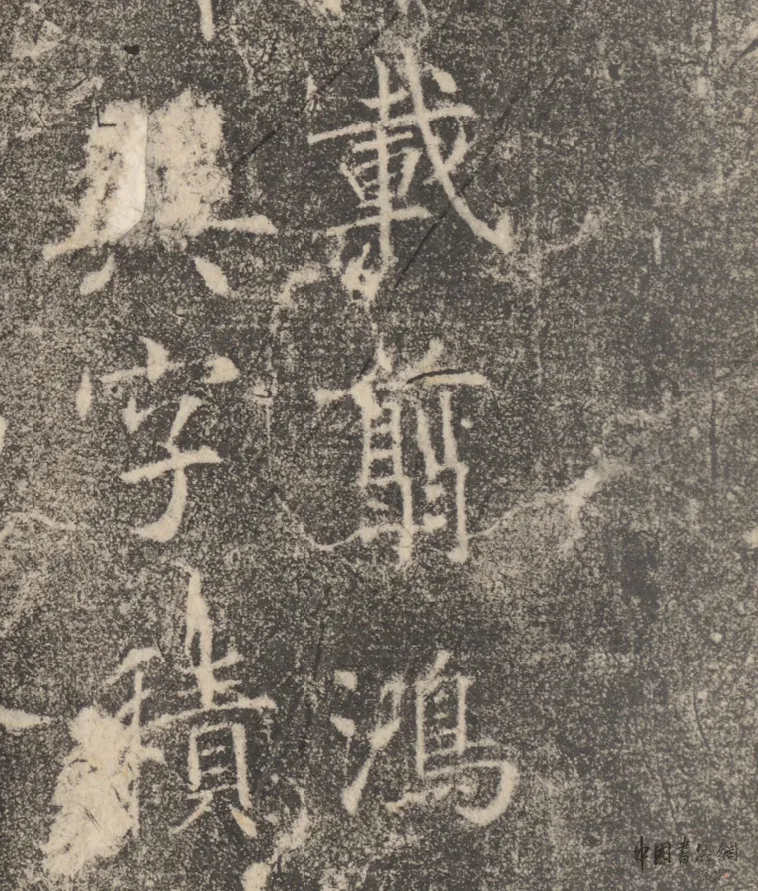 載翦鴻
字積
中国書法網